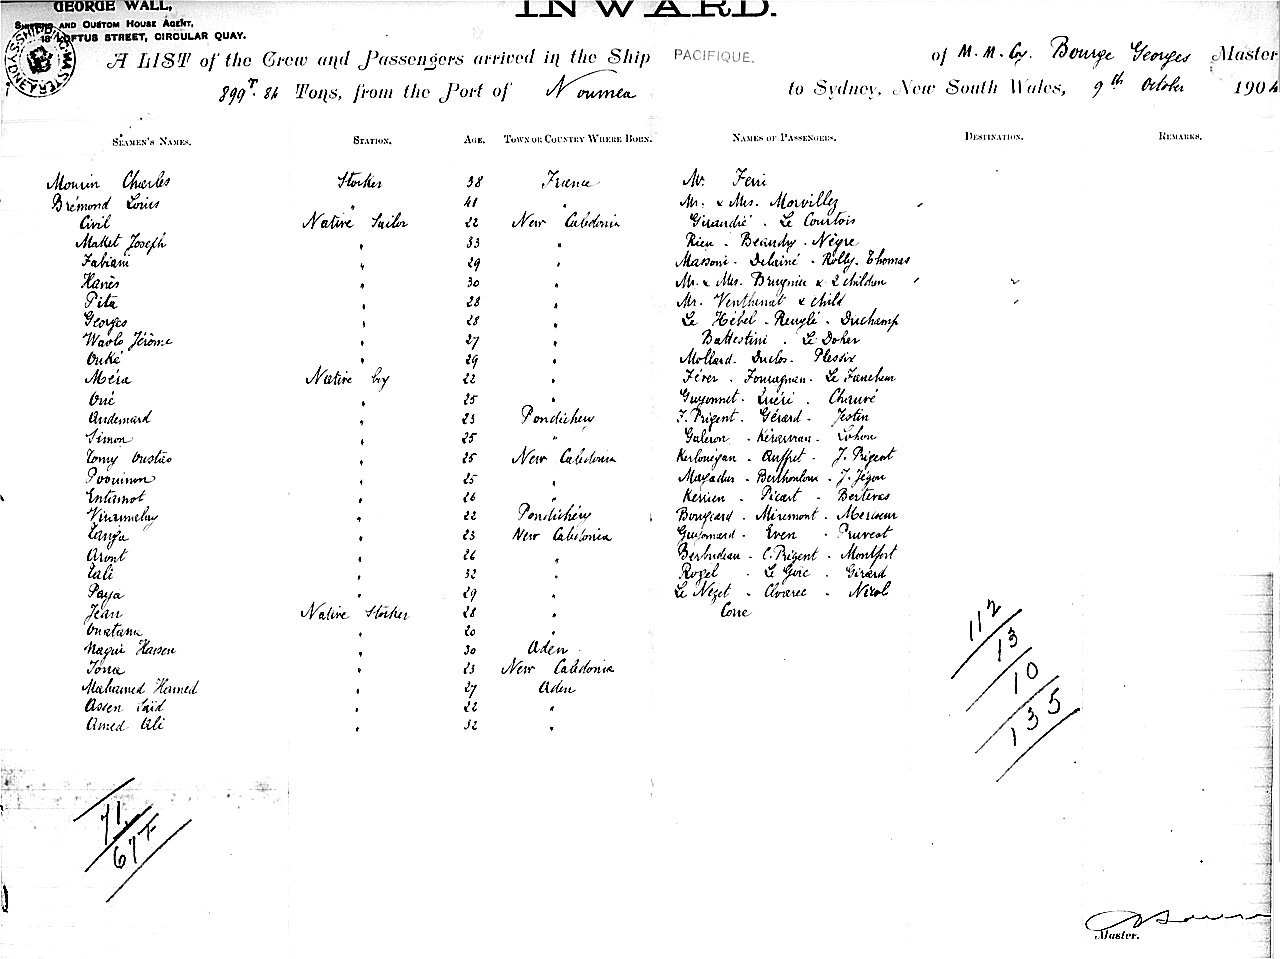 GEORGE WALL,
INWARD.
SHIPPING AND CUSTOM HOUSE AGENT,
18 LOFTUS STREET, CIRCULAR QUAY.
A LIST of the Crew and Passengers arrived in the Ship PACIFIQUE. of M. M. Cy. Bourge Georges Master
899 T. 84 Tons, from the Port of Noumea to Sydney, New South Wales, 9th October 1904
SEAMEN'S NAMES. STATION. AGE. TOWN OR COUNTRY WHERE BORN. NAMES OF PASSENGERS. DESTINATION. REMARKS.
Mourin Charles Stoker 38 France Mr. Ferri
Brémond Louis " 41 " Mr. & Mrs. Morvillez
Civil Native Sailor 22 New Caledonia Girandié. Le Courtois
Maket Joseph " 33 " Rieu. Beaudry. Nègre
Fabiani " 29 " Massoni. Delainé. Rolly. Thomas
Hanès " 30 " Mr. & Mrs. Brugnie & 2 children
Pita " 28 " Mr. Venthenat & child
Georges " 28 " Le Hébel. Reuglé. Duchamp
Waolo Jérôme " 27 " Battestini. Le Doher
Ouké " 29 " Mollard. Duclos. Plessix
Méra Native Boy 22 " Férer. Fouragnan. Le Fancheur
Oué " 25 " Guyonnet. Quéri. Chauvé
Andemard " 23 Pondichery F. Prigent. Gérard. Jestin
Simon " 25 " Galeron. Kérarvran. Lohou
Tomy Oustao " 25 New Caledonia Kerlouégan. Auffret. J. Prigent
Poouinon " 25 " Magadur. Berthoulou. J. Jégou
Entémot " 26 " Kerrien. Picart. Berteras
Virammalay " 22 Pondichéry Bougeard. Miremont. Meriseur
Langa " 23 New Caledonia Guyomard. Even. Pruvost
Aront " 26 " Berbudeau. C. Prigent. Montfort
Tali " 32 " Rozel. Le Goïc. Girard
Paya " 29 " Le Nézet. Alvarec. Nicol
Jean Native Stoker 28 " Corre
Ouatam " 20 "
Nagui Hassen " 30 Aden
Iona " 23 New Caledonia
Mahamed Hamed " 27 Aden
Assen Saïd " 22 "
Amed Ali " 32 "
112
13
10
135
71
67 F
Master.